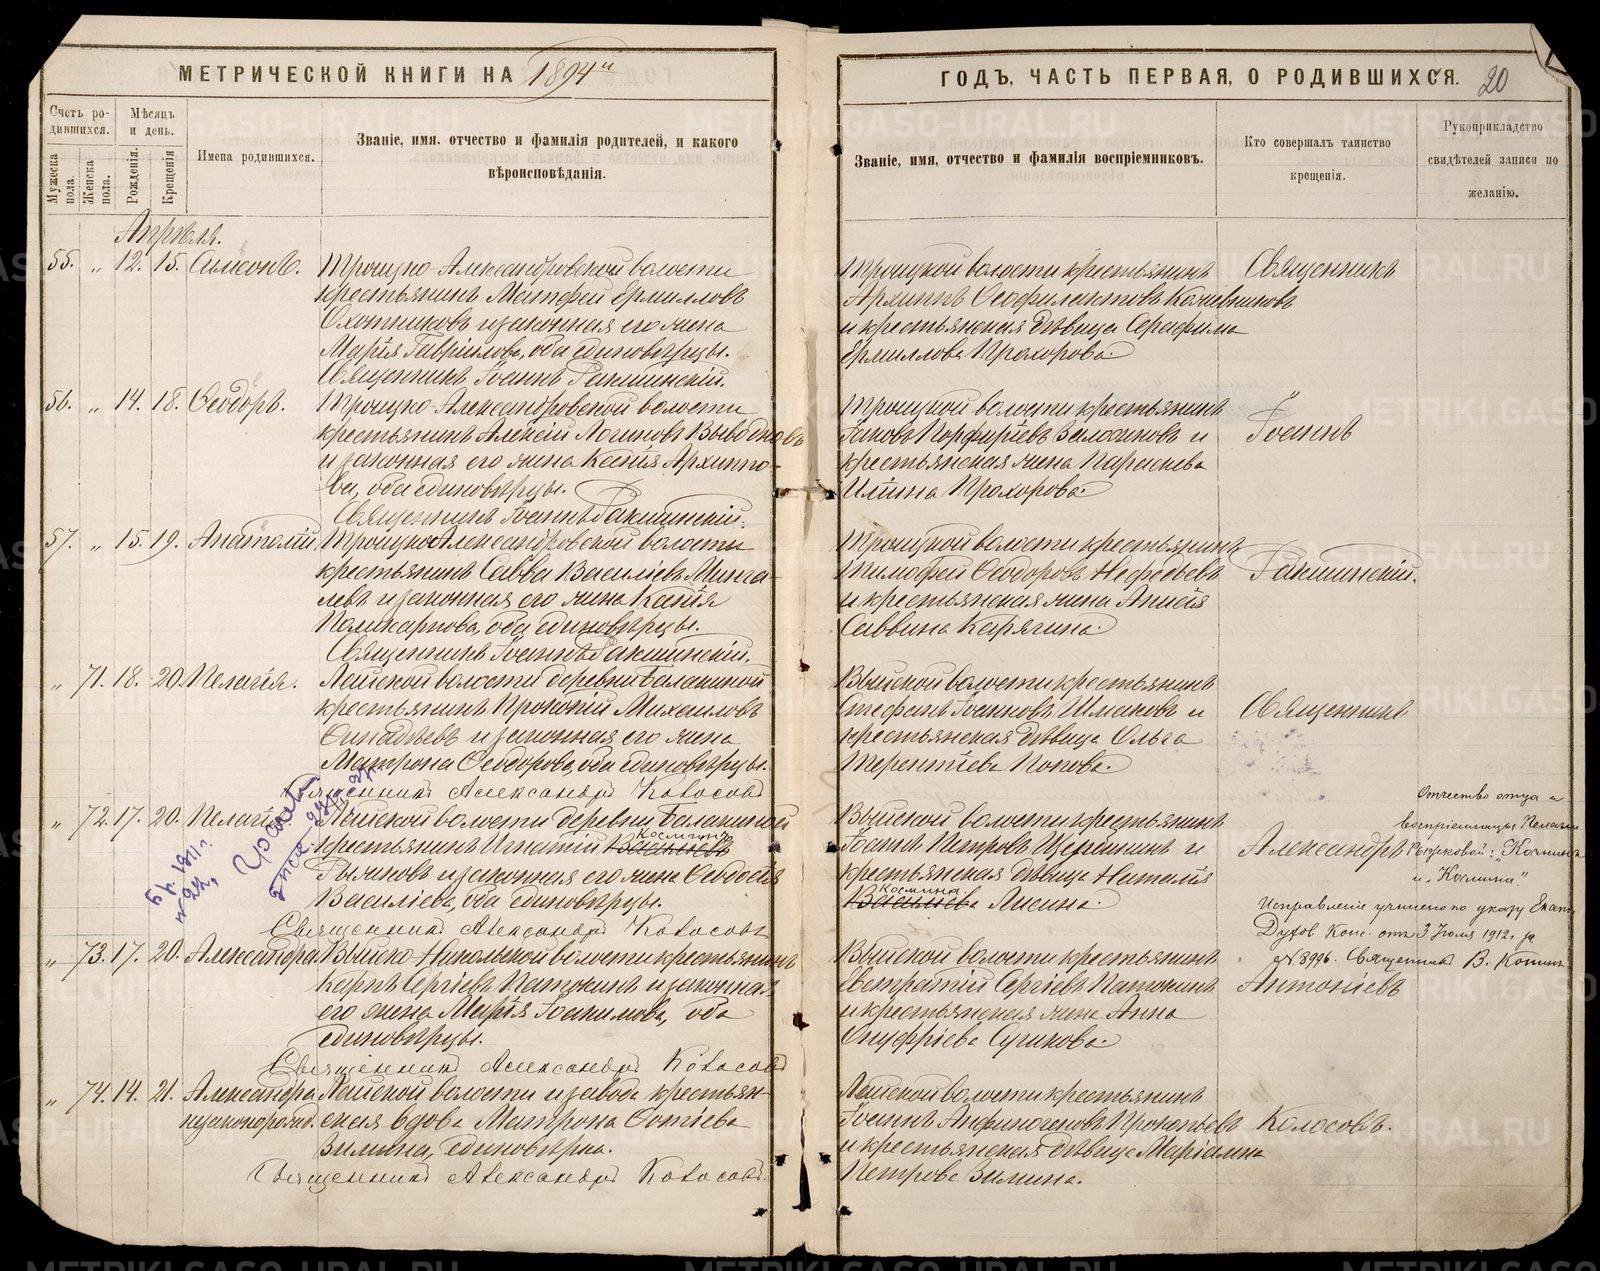 МЕТРИЧЕСКОЙ КНИГИ НА 1894й
ГОДЪ, ЧАСТЬ ПЕРВАЯ, О РОДИВШИХСЯ. 20
Счетъ родившихся.
Мѣсяцъ и день.
Мужеска пола.
Женска пола.
Рожденія.
Крещенія
Имена родившихся.
Званіе, имя. отчество и фамилія родителей, и какого
вѣроисповѣданія.
Званіе, имя, отчество и фамилія воспріемниковъ.
Кто совершалъ таинство
крещенія.
Рукоприкладство
свидѣтелей записи по
желанію.
Апрѣля.
55. „ 12. 15. Симеонъ. Троицко-Александровской волости
крестьянинъ Матфей Ермиловъ
Охотниковъ и законная его жена
Марія Гавріилова, оба единовѣрцы.
Священникъ Іоаннъ Ракшинскій.
Троицкой волости крестьянинъ
Архиппъ Ѳеофилактовъ Кожевниковъ
и крестьянская дѣвица Серафима
Ермилова Прохорова.
Священникъ
56. „ 14. 18. Ѳеодоръ. Троицко-Александровской волости
крестьянинъ Алексій Логиновъ Выводновъ
и законная его жена Ксенія Архиппо-
ва, оба единовѣрцы.
Священникъ Іоаннъ Ракшинскій.
Троицкой волости крестьянинъ
Іаковъ Порфиріевъ и
крестьянская жена Параскева
Иліина Прохорова.
Іоаннъ
57. „ 15. 19. Анатолій Троицко Александровской волости
крестьянинъ Савва Василіевъ Минга-
левъ и законная его жена Ксенія
Поликарпова, оба единовѣрцы.
Священникъ Іоаннъ Ракшинскій.
Троицкой волости крестьянинъ
Тимофей Ѳеодоровъ Нефедьевъ
и крестьянская жена Анисія
Саввина Карягина.
Ракшинскій.
„ 71. 18. 20. Пелагія. Лайской волости деревни Балакиной
крестьянинъ Прокопій Михаиловъ
и законная его жена
Матрона Ѳеодорова, оба единовѣрцы.
Священникъ Александръ Колосовъ
Выйской волости крестьянинъ
Стефанъ Іоанновъ Шмаковъ и
крестьянская дѣвица Ольга
Терентіева Попова.
Священникъ
„ 72. 17. 20. Пелагія Лайской волости деревни Балакиной
крестьянинъ Игнатій Василіевъ Косминъ
Рычковъ и законная его жена Ѳеодосія
Василіева, оба единовѣрцы.
Священникъ Александръ Колосовъ
Выйской волости крестьянинъ
Іоаннъ Петровъ и
крестьянская дѣвица Наталія
Василіева Космина Лисина.
Александръ
Отчество отца и
воспріемницы Пелагіи
Рычковой: „Косминъ
и „Космина."
Исправленіе учинено по указу Екат.
Духов. Конс. отъ 3 Іюля 1912 г. за
№ 8996. Священникъ В.
„ 73. 17. 20. Александра Выйско-Никольской волости крестьянинъ
Карпъ Сергіевъ Патокинъ и законная
его жена Марія Іоакимова, оба
единовѣрцы.
Священникъ Александръ Колосовъ
Выйской волости крестьянинъ
Евстратій Сергіевъ Патокинъ
и крестьянская жена Анна
Онуфріева Сучкова.
Антоніевъ
„ 74. 14. 21. Александра Лайской волости и завода крестьян-
незаконорожд. ская вдова Матрона Фотіева
Зимина, единовѣрка.
Священникъ Александръ Колосовъ.
Лайской волости крестьянинъ
Іоаннъ Анфиногеновъ Прокопьевъ
и крестьянская дѣвица Маріамна
Петрова Зимина.
Колосовъ.